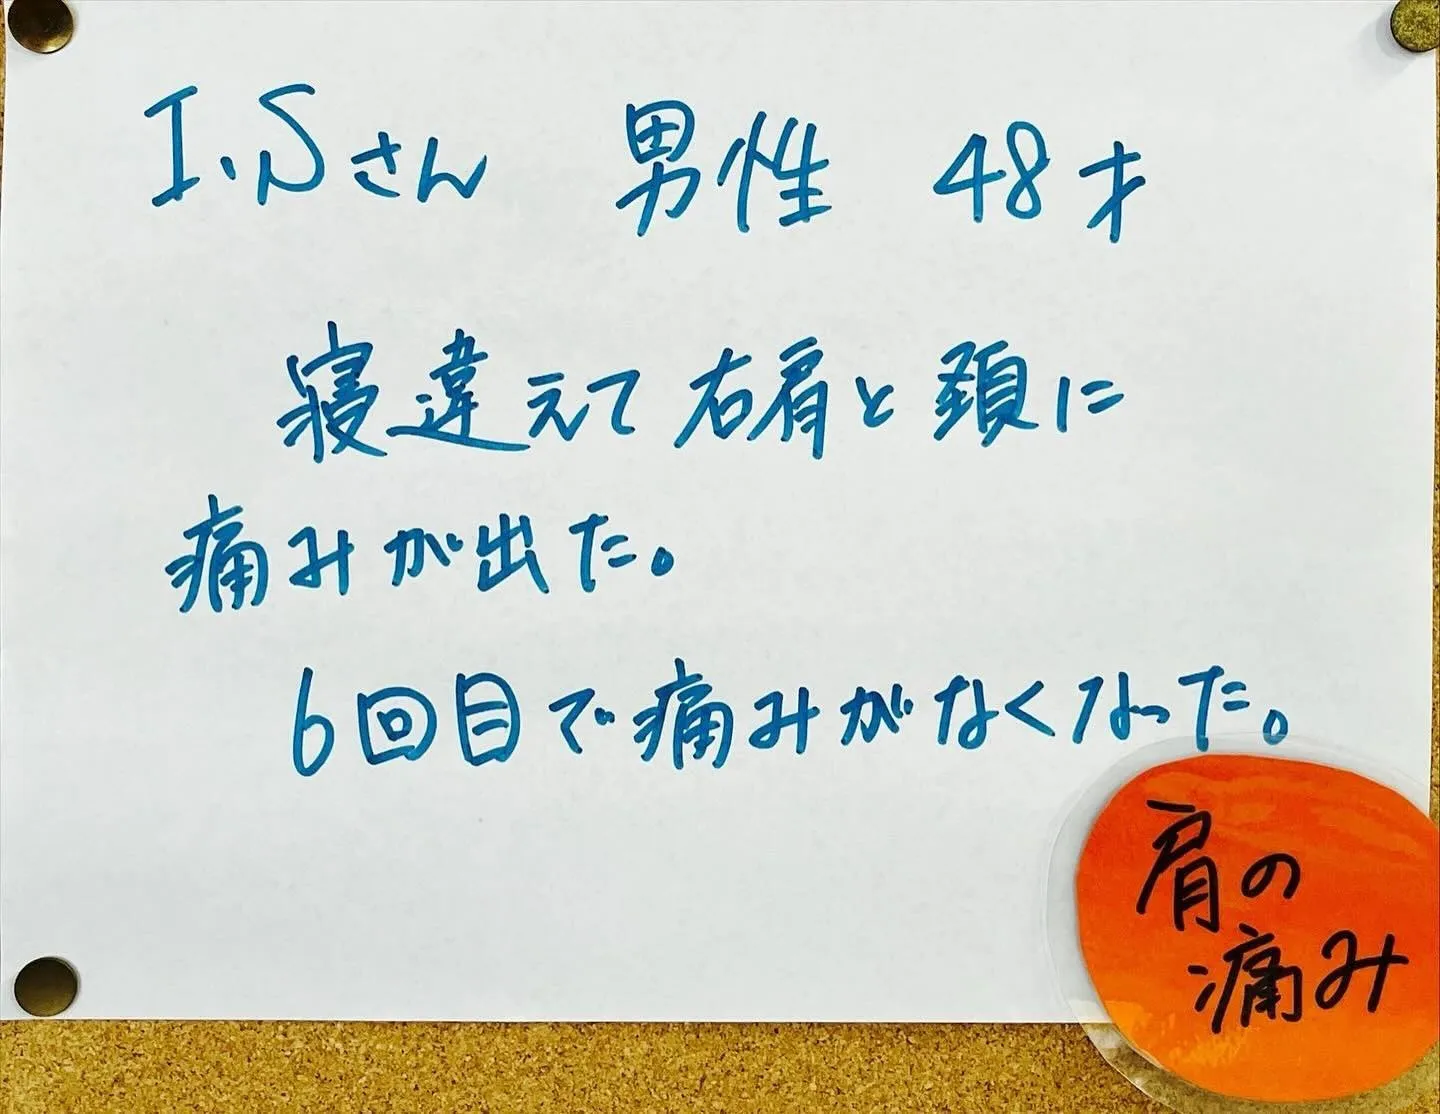 I.Sさん 男性 48才
寝違えて右肩と頚に
痛みが出た。
6回目で痛みがなくなった。
肩の
痛み